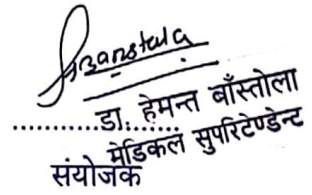 डा. हेमन्त बाँस्तोला
मेडिकल सुपरिटेण्डेन्ट
संयोजक